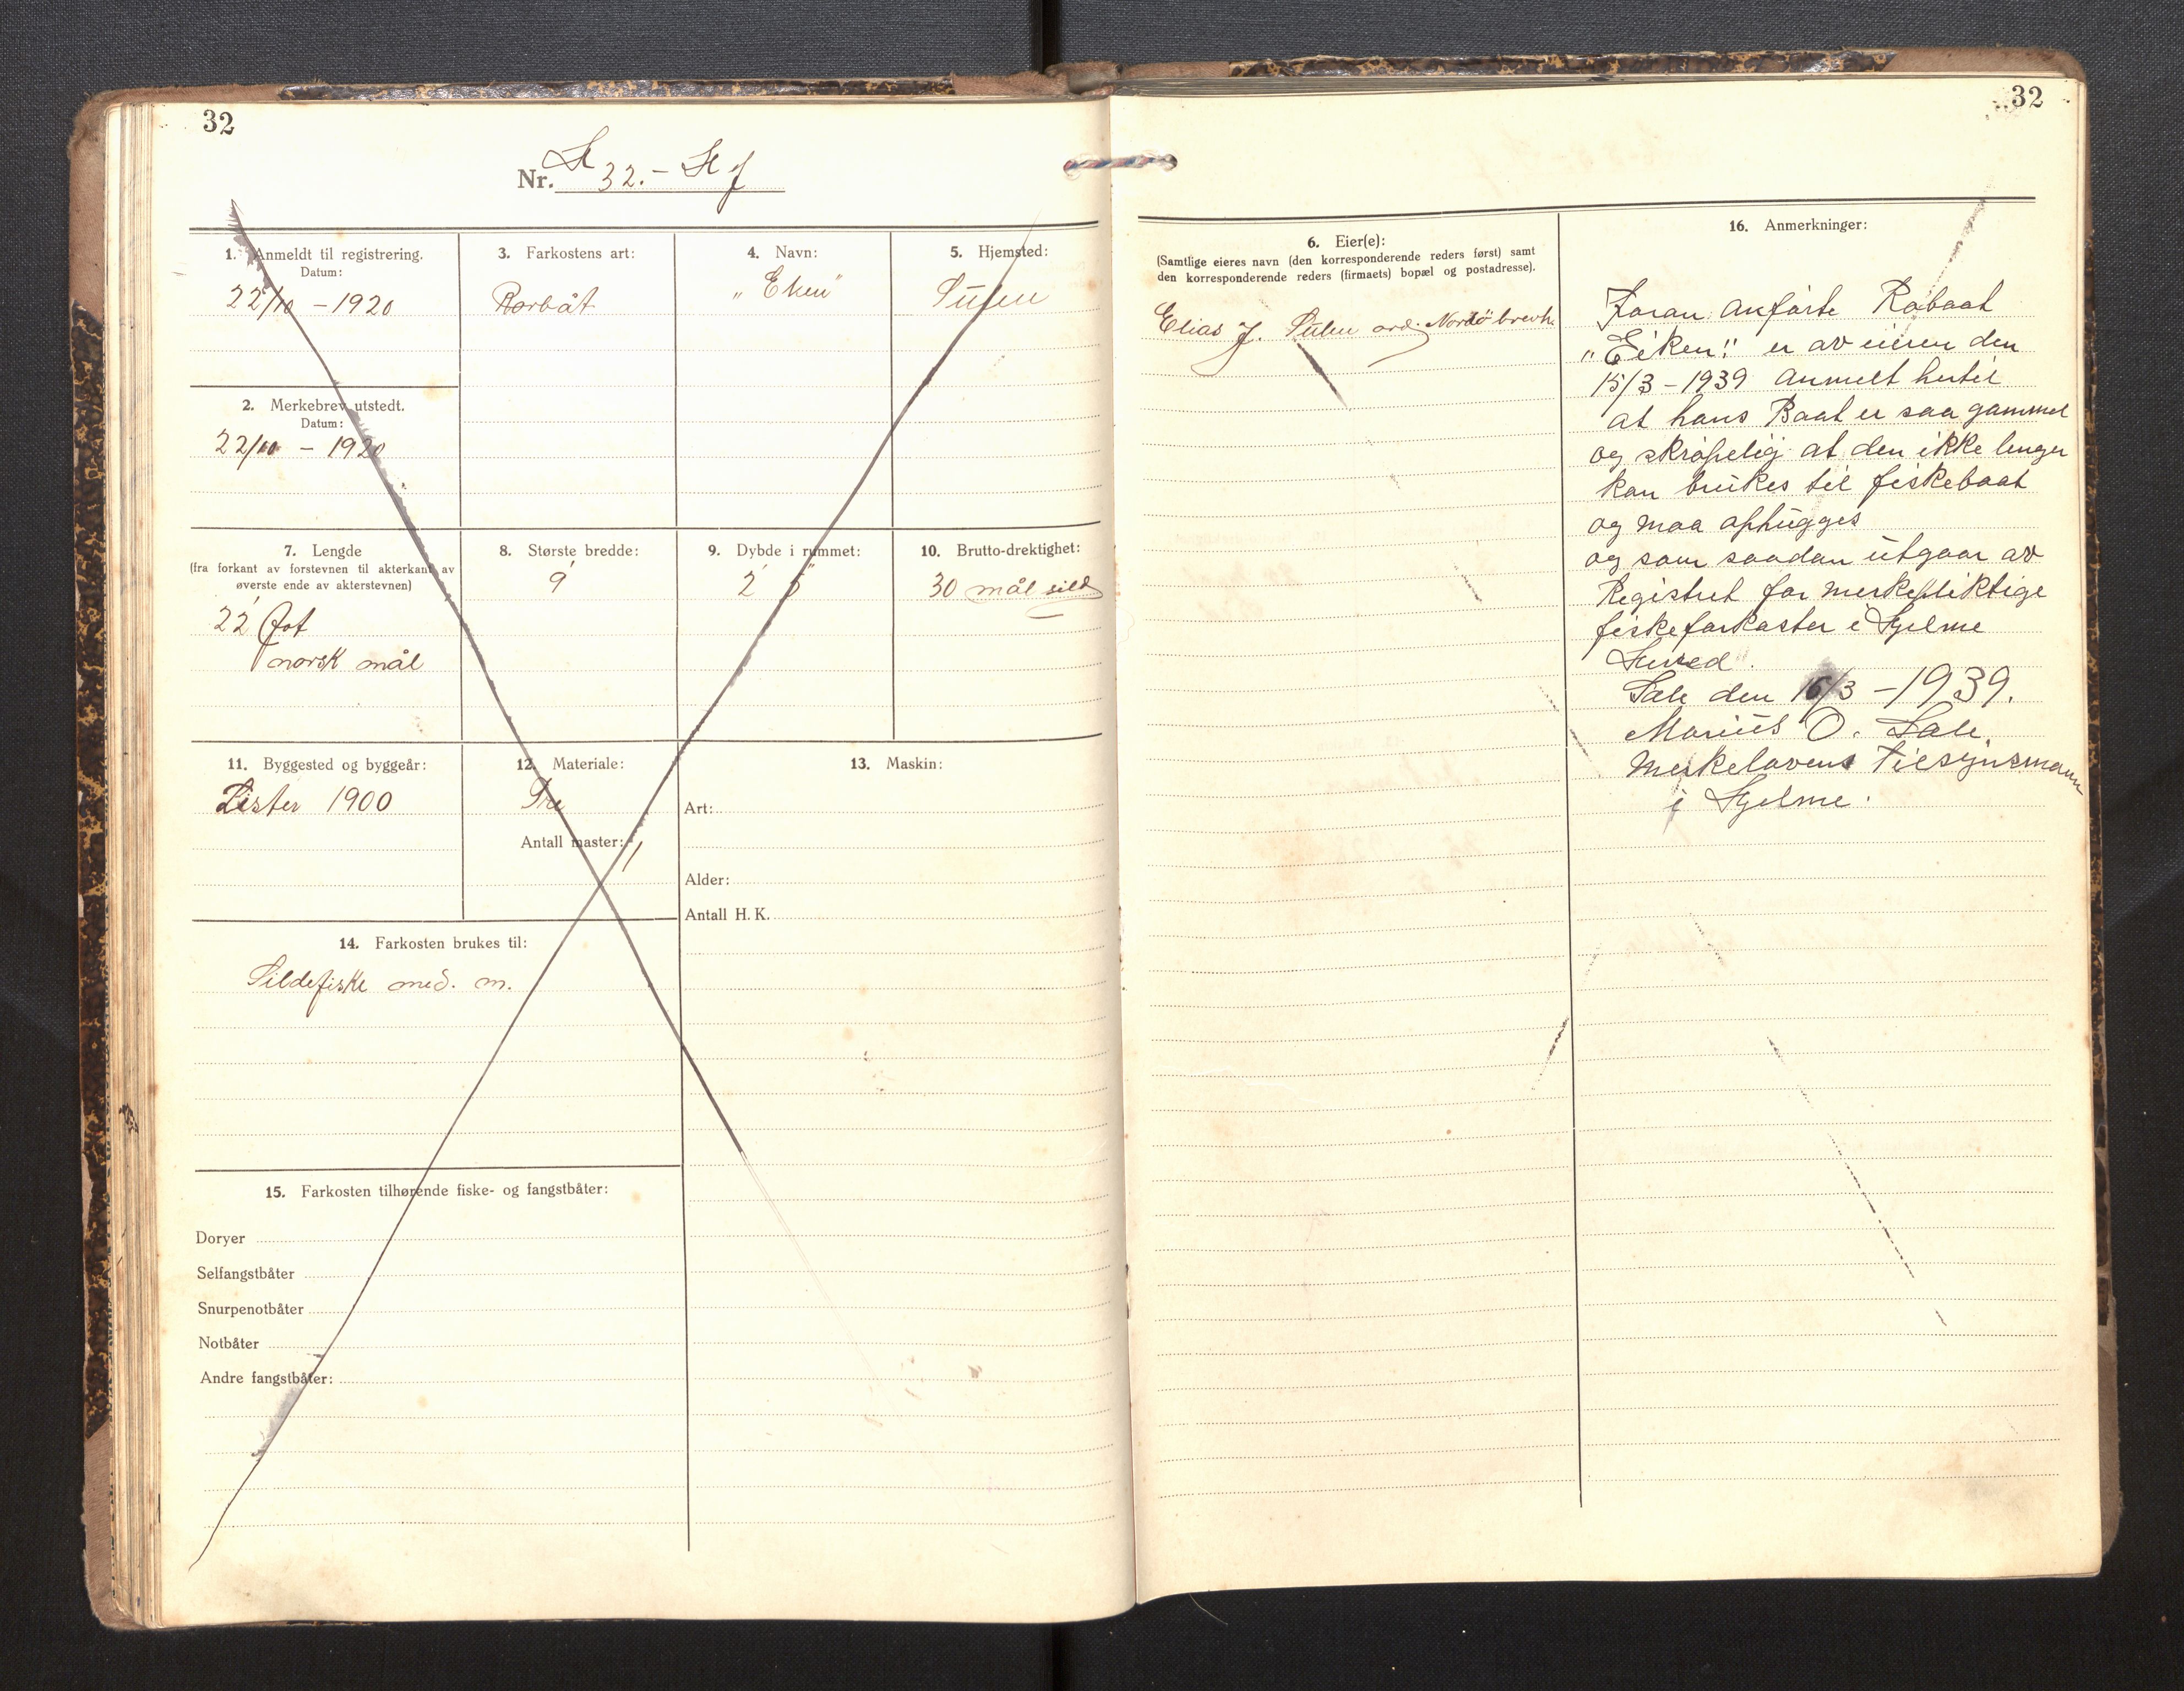 32
Nr. H 32. - Hj
1. Anmeldt til registrering.
Datum:
22/10 - 1920
2. Merkebrev utstedt.
Datum:
22/10 - 1920
3. Farkostens art:
Rorbåt
4. Navn:
"Eken"
5. Hjemsted:
Sulen
7. Lengde
(fra forkant av forstevnen til akterkant av
øverste ende av akterstevnen)
22' Fot
norsk mål
8. Største bredde:
9'
9. Dybde i rummet:
2' 5"
10. Brutto-drektighet:
30 mål sild
11. Byggested og byggeår:
Lister 1900
12. Materiale:
Tre
Antall master: 1
13. Maskin:
Art:
Alder:
Antall H. K.
14. Farkosten brukes til:
Sildefiske med. m.
15. Farkosten tilhørende fiske- og fangstbåter:
Doryer
Selfangstbåter
Snurpenotbåter
Notbåter
Andre fangstbåter:
32
6. Eier(e):
(Samtlige eieres navn (den korresponderende reders først) samt
den korresponderende reders (firmaets) bopæl og postadresse).
Elias J. Sulen Nordö brevh.
16. Anmerkninger:
Foran anførte Robaat
"Eiken" er av eieren den
15/3 - 1939 anmelt hertil
at hans Baat er saa gammel
og skrøpelig at den ikke lenger
kan brukes til fiskebaat
og maa ophugges
og som saadan utgaar av
Registret for merkepliktige
fiskefarkoster i Hjelme
Herred.
Sæle den 16/3 - 1939.
Marius O. Sæle.
Merkelovens Tilsynsmann
i Hjelme.